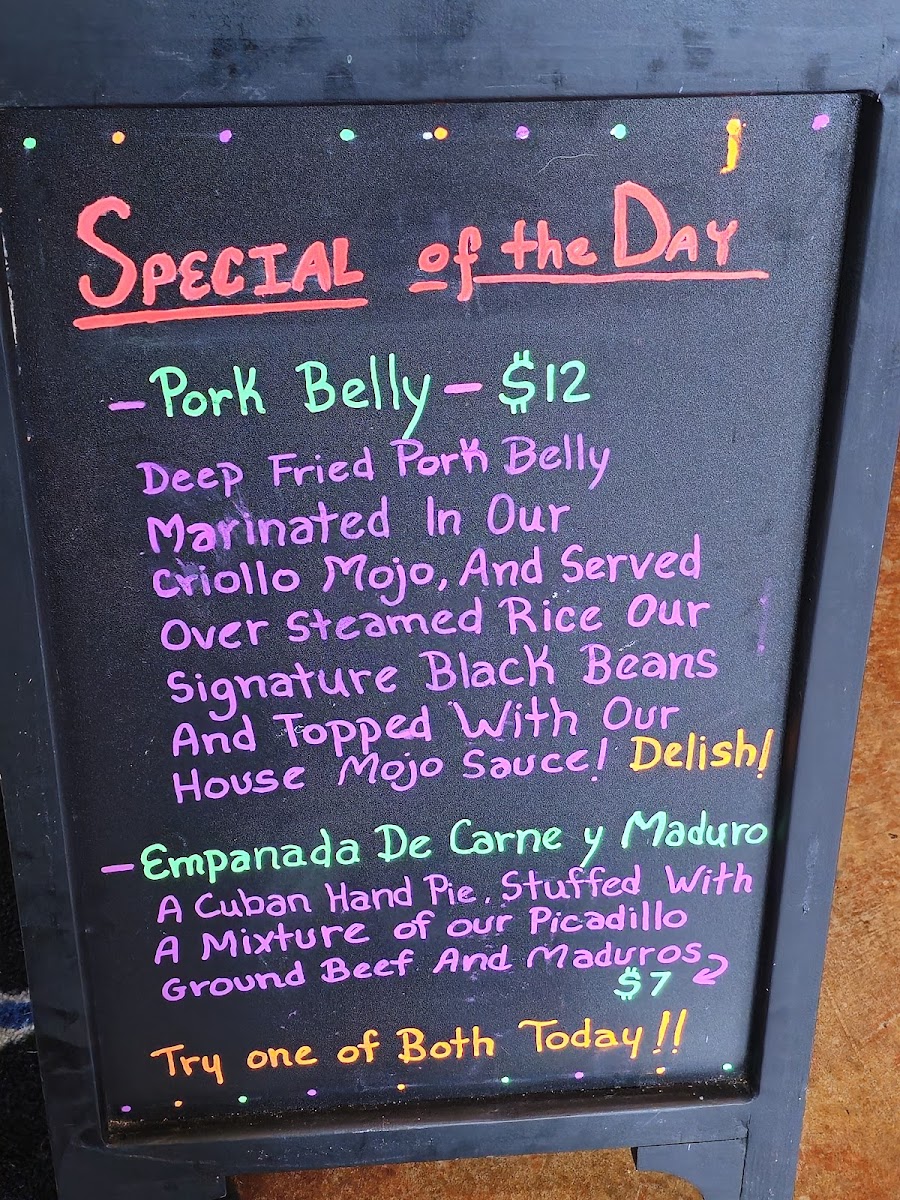 Special of the Day
- Pork Belly - $12
Deep Fried Pork Belly
Marinated In Our
Criollo Mojo, And Served
Over Steamed Rice Our
Signature Black Beans
And Topped With Our
House Mojo Sauce! Delish!
- Empanada De Carne y Maduro
A Cuban Hand Pie, Stuffed With
A Mixture of our Picadillo
Ground Beef And Maduros
$7
Try one of Both Today!!